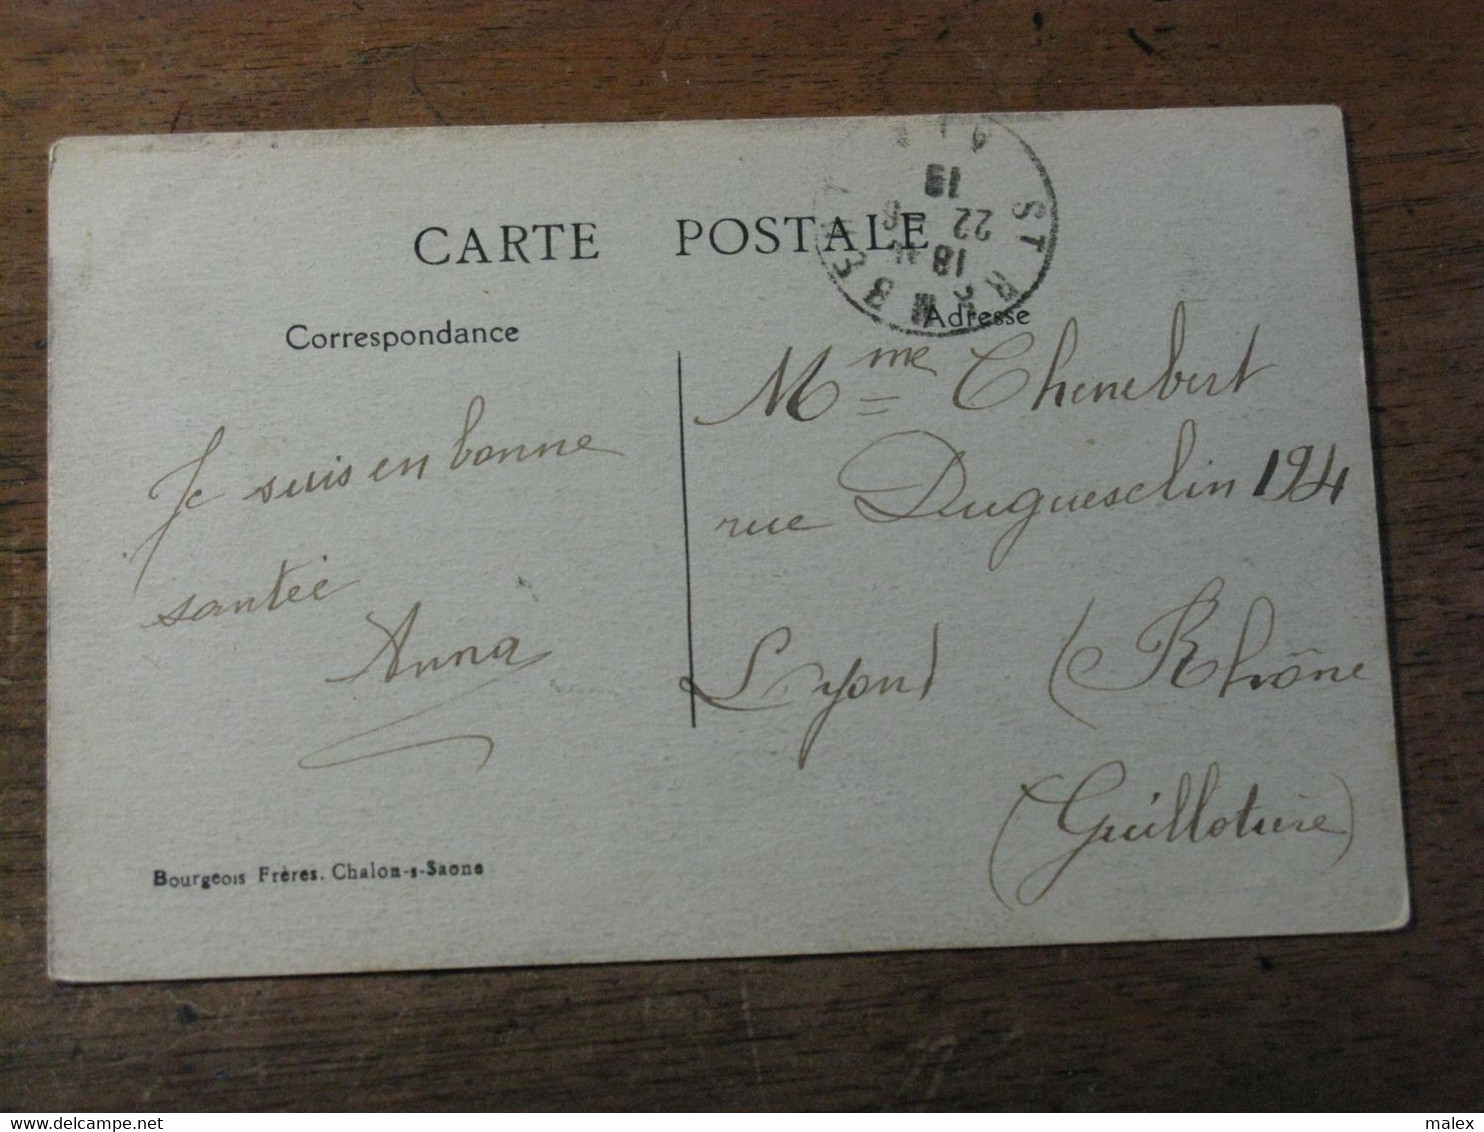 CARTE POSTALE
Correspondance
Adresse
Je suis en bonne
santée
Anna
Mme Chenebert
rue Duguesclin 194
Lyon (Rhône
(Guillotière)
Bourgeois Frères. Chalon-s-Saone
18
22
19
malex